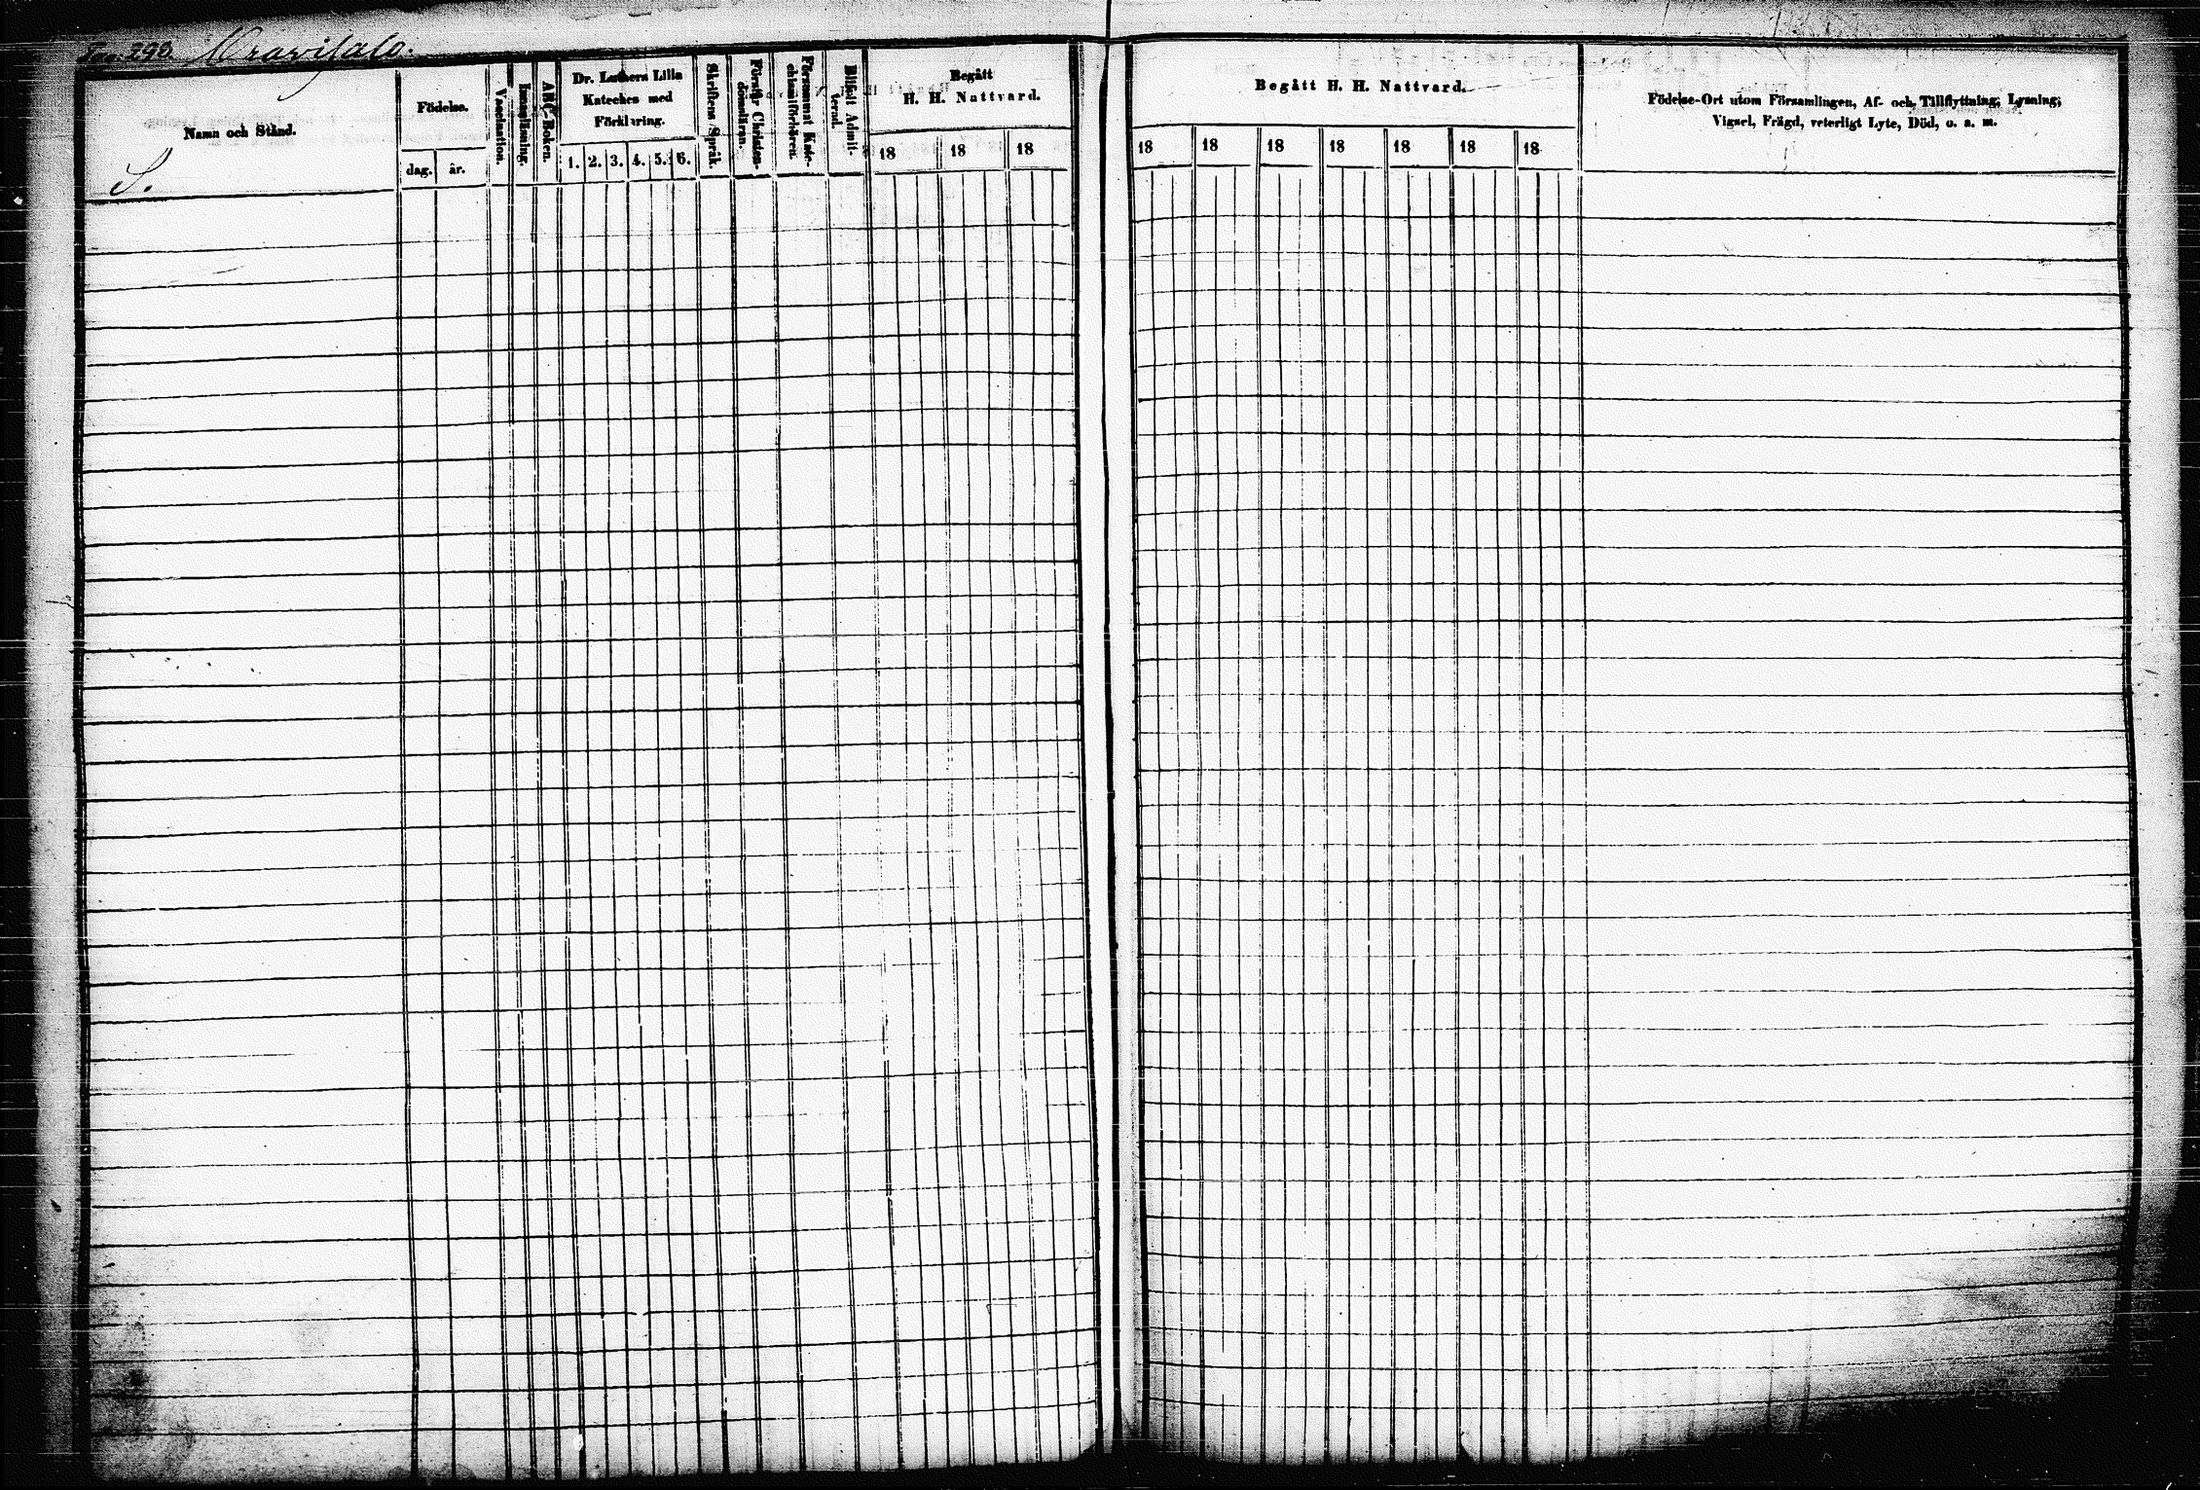 Pag. 298.
Namn och Stånd.
S.
Födelse.
dag. år.
Vaccination.
Innanläsning.
ABC-Boken.
Dr. Luthers Lilla
Kateches med
Förklaring.
1. 2. 3. 4. 5. 6.
Skriftens Språk.
Förstår Christen-
domsläran.
Försummat Kate-
chismiförhören.
Blifvit Admit-
terad.
Begått
H. H. Nattvard.
18 18 18
Begått H. H. Nattvard.
18 18 18 18 18 18 18
Födelse-Ort utom Församlingen, Af- och Tillflyttning; Lysning;
Vigsel, Frägd, veterligt Lyte, Död, o. a. m.